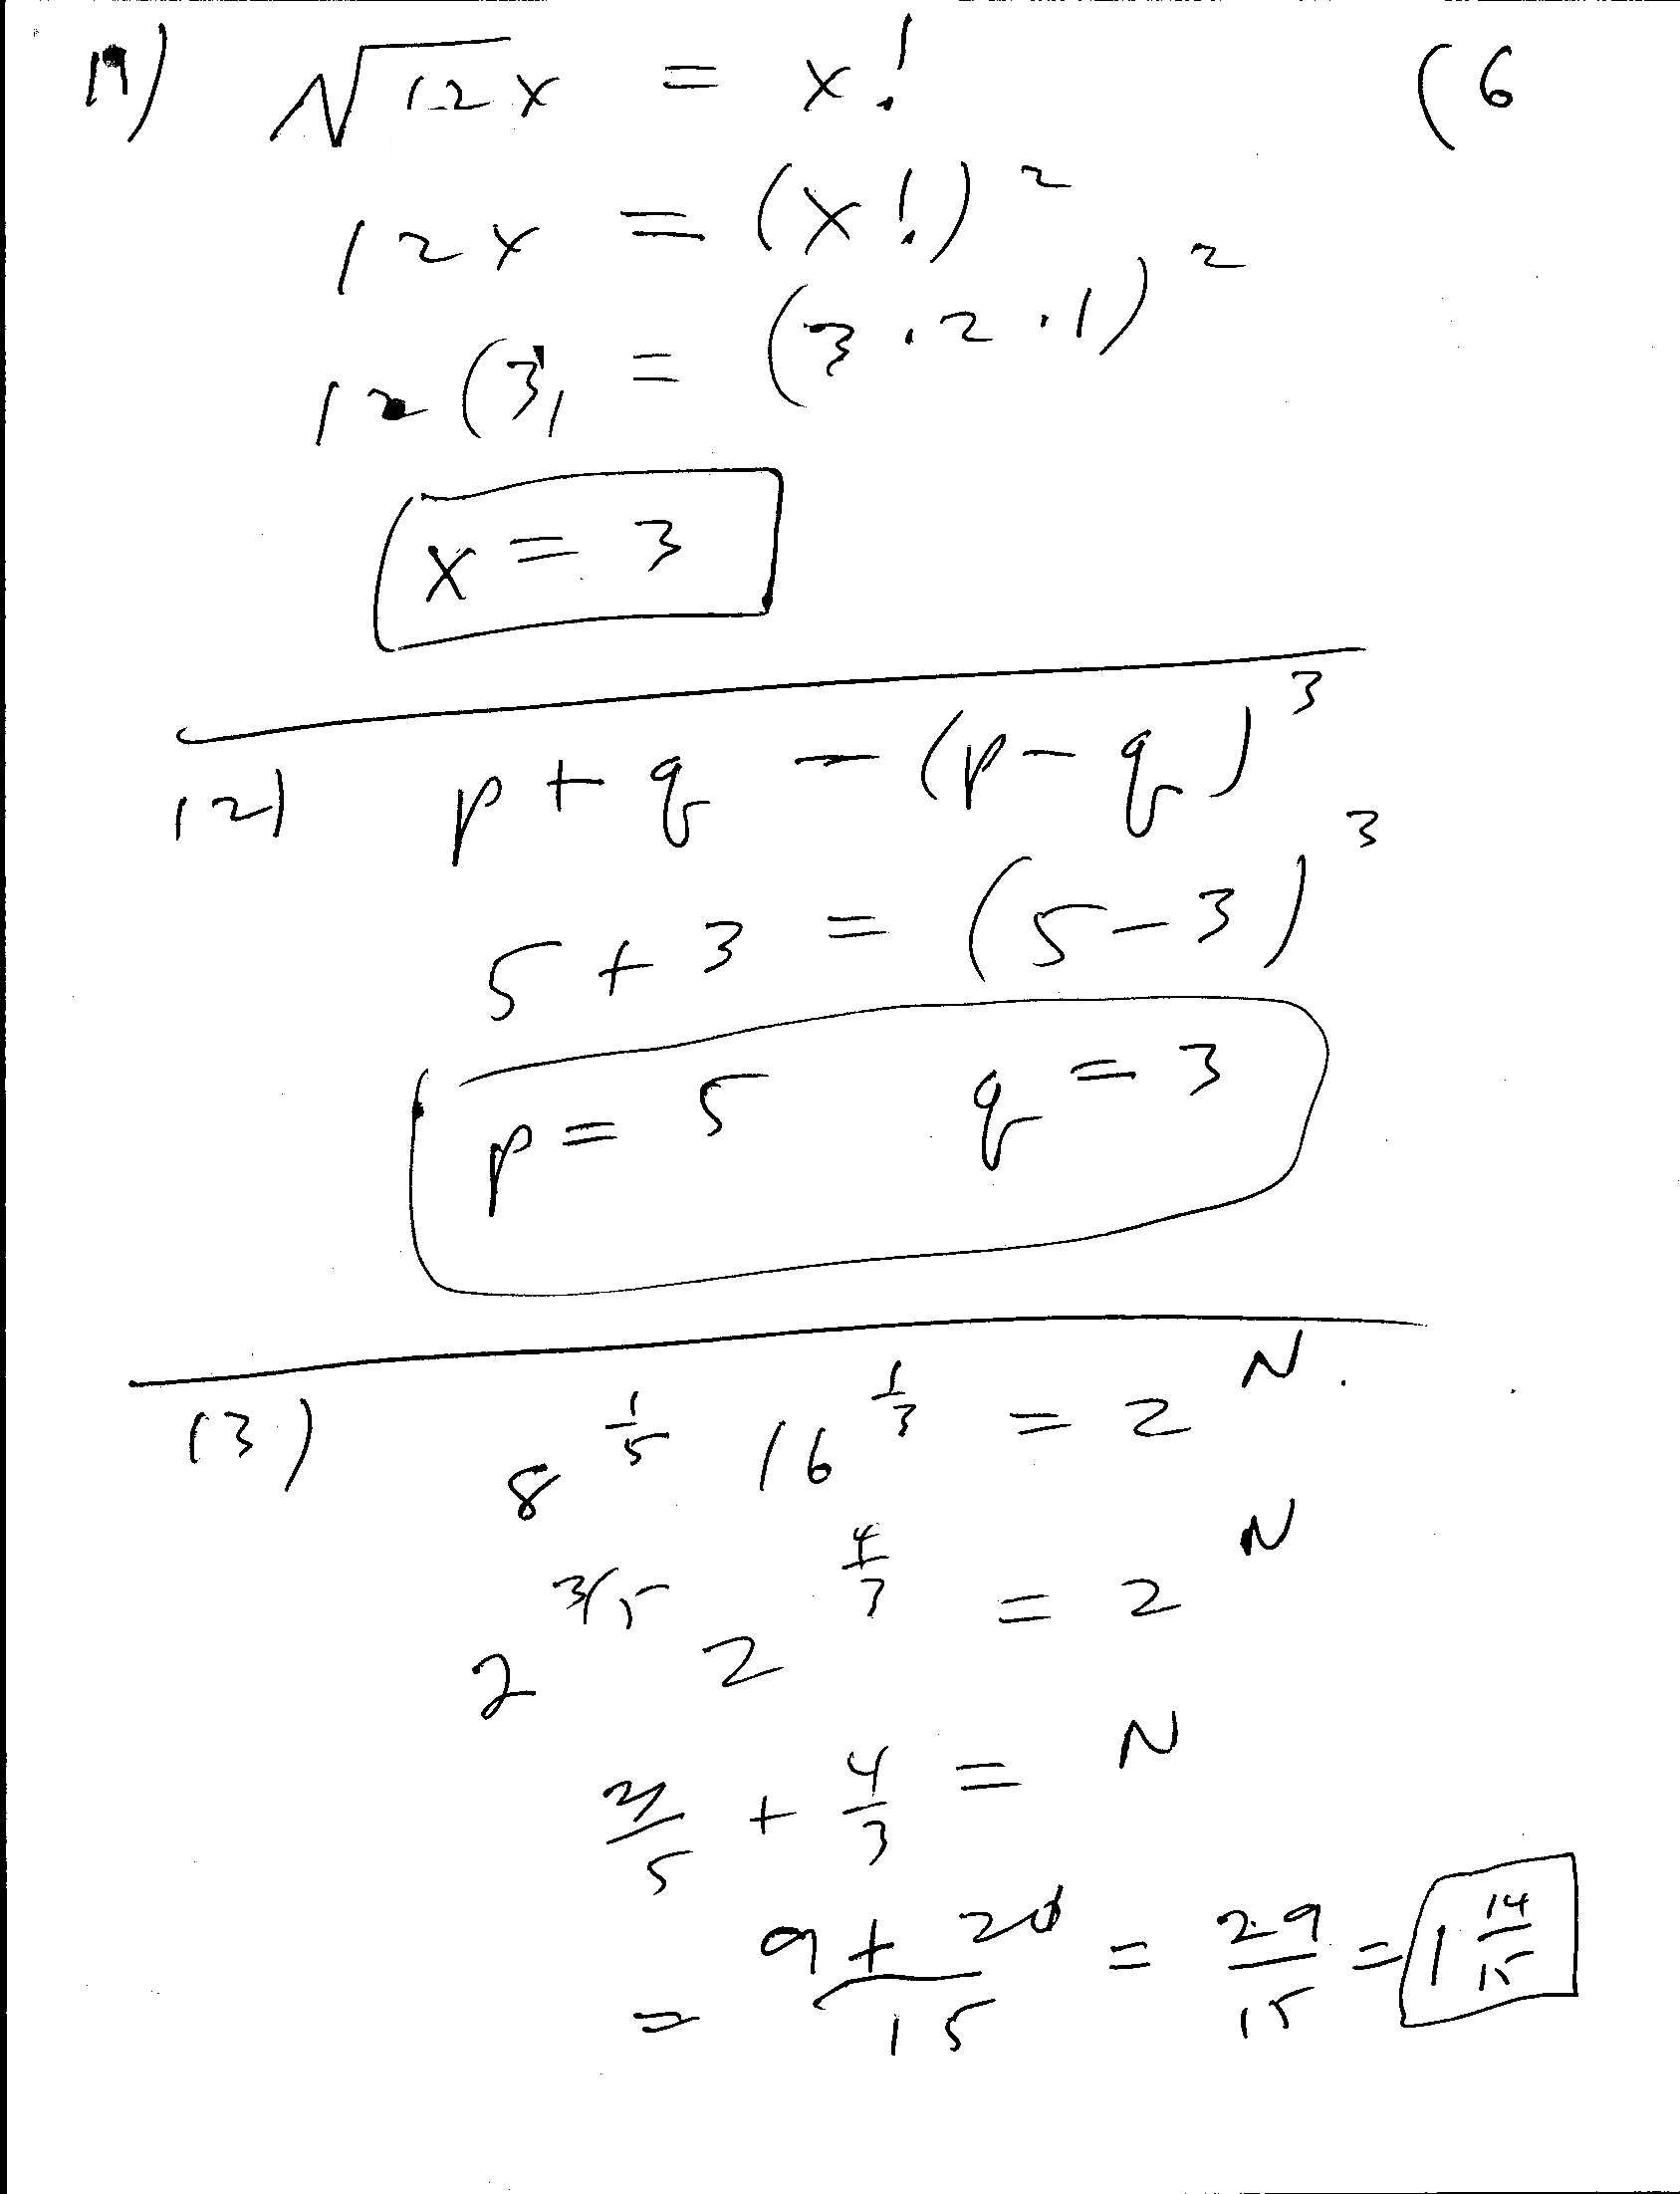 11) √12x = x! (6
12x = (x!)²
12(3) = (3·2·1)²
x = 3
12) p + q = (p - q)³
5 + 3 = (5 - 3)³
p = 5 q = 3
13) 8^(1/5) 16^(1/3) = 2^N
2^(3/5) 2^(4/3) = 2^N
3/5 + 4/3 = N
= (9 + 20)/15 = 29/15 = 1 14/15